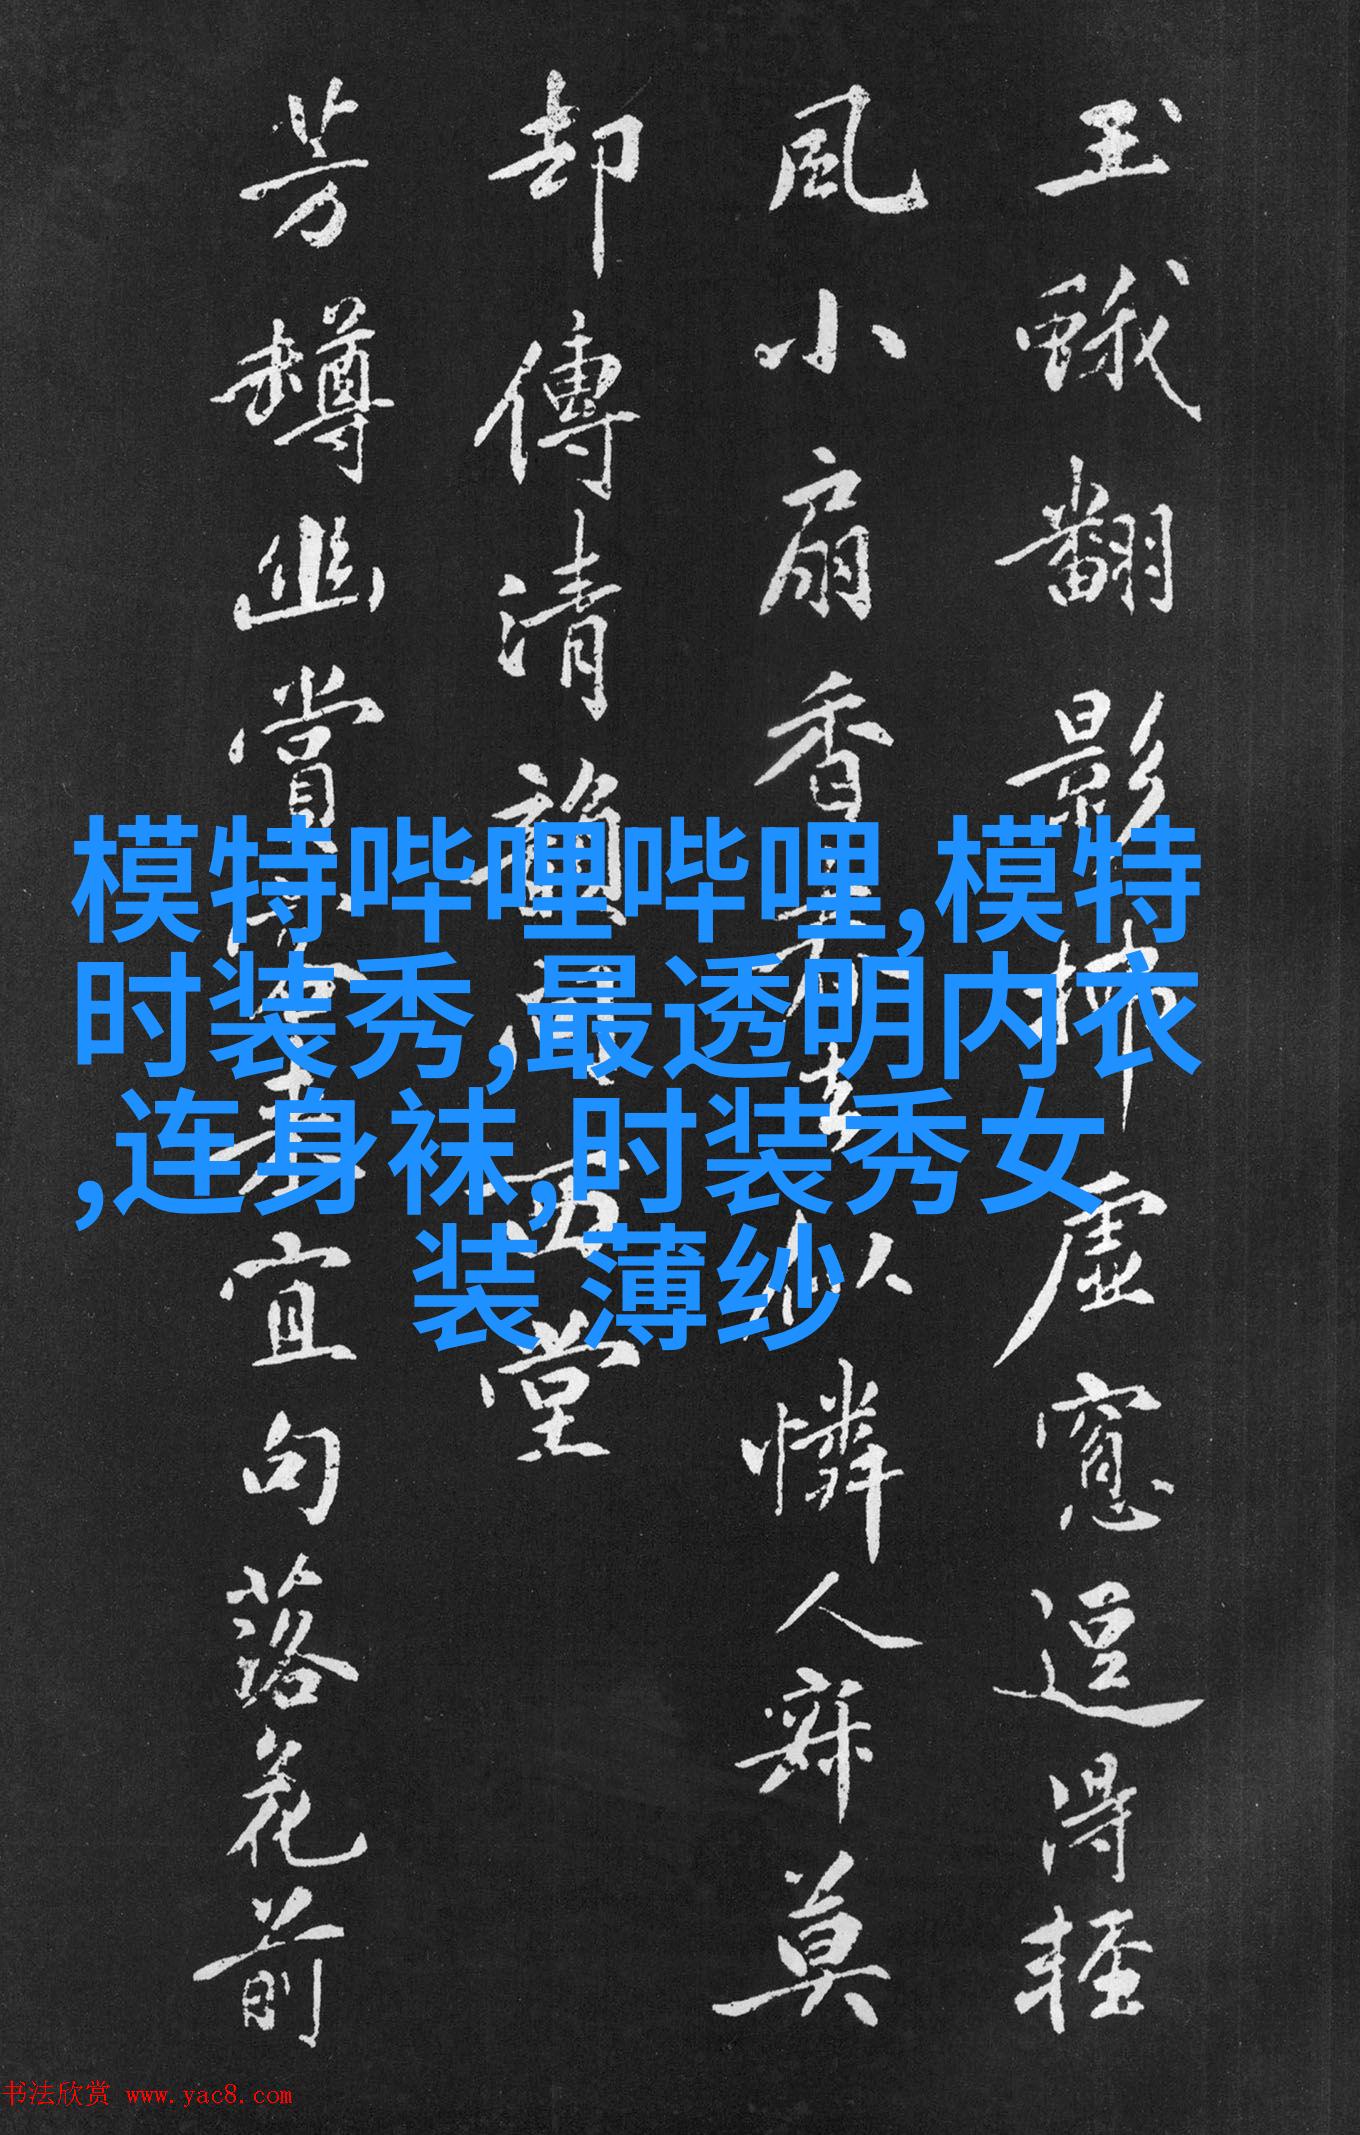 玉蛾翻影拂虛窻逗得輕
風小扇香
似憐人寐莫
却傳清韻
西堂
芳樽幽賞
宜句落花前
模特哔哩哔哩,模特
时装秀,最透明内衣
,连身袜,时装秀女
装,薄纱
书法欣赏 www.yac8.com